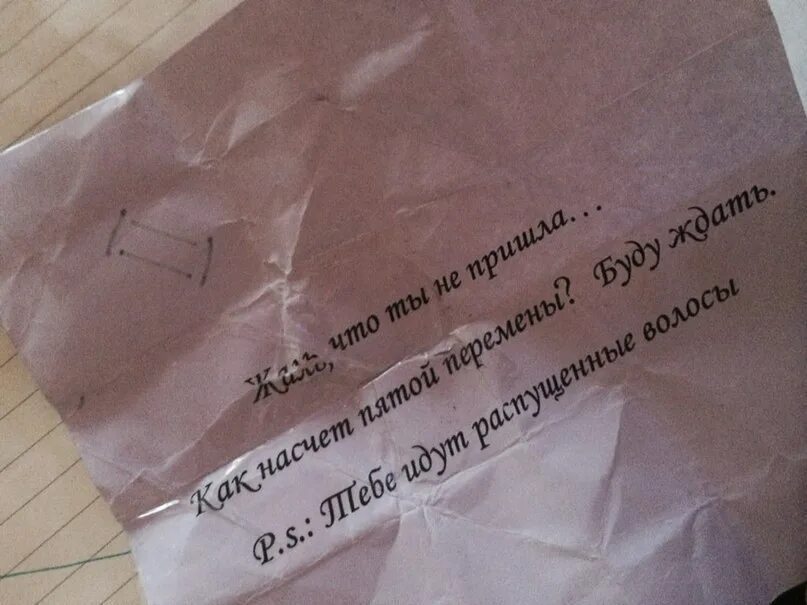 Жаль, что ты не пришла...
Как насчет пятой перемены? Буду ждать.
P.s.: Тебе идут распущенные волосы